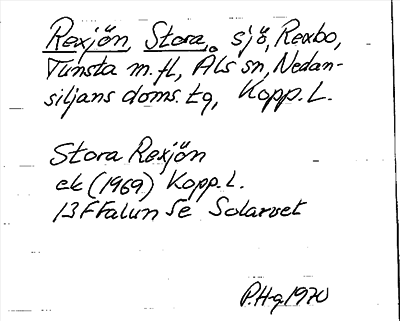 Rexjön, Stora, sjö, Rexbo,
Tunsta m.fl, Als sn, Nedan-
siljans doms. tg, Kopp. L.
Stora Rexjön
ek (1969) Kopp. L.
13F Falun Se Solarvet
P.Hg 1970